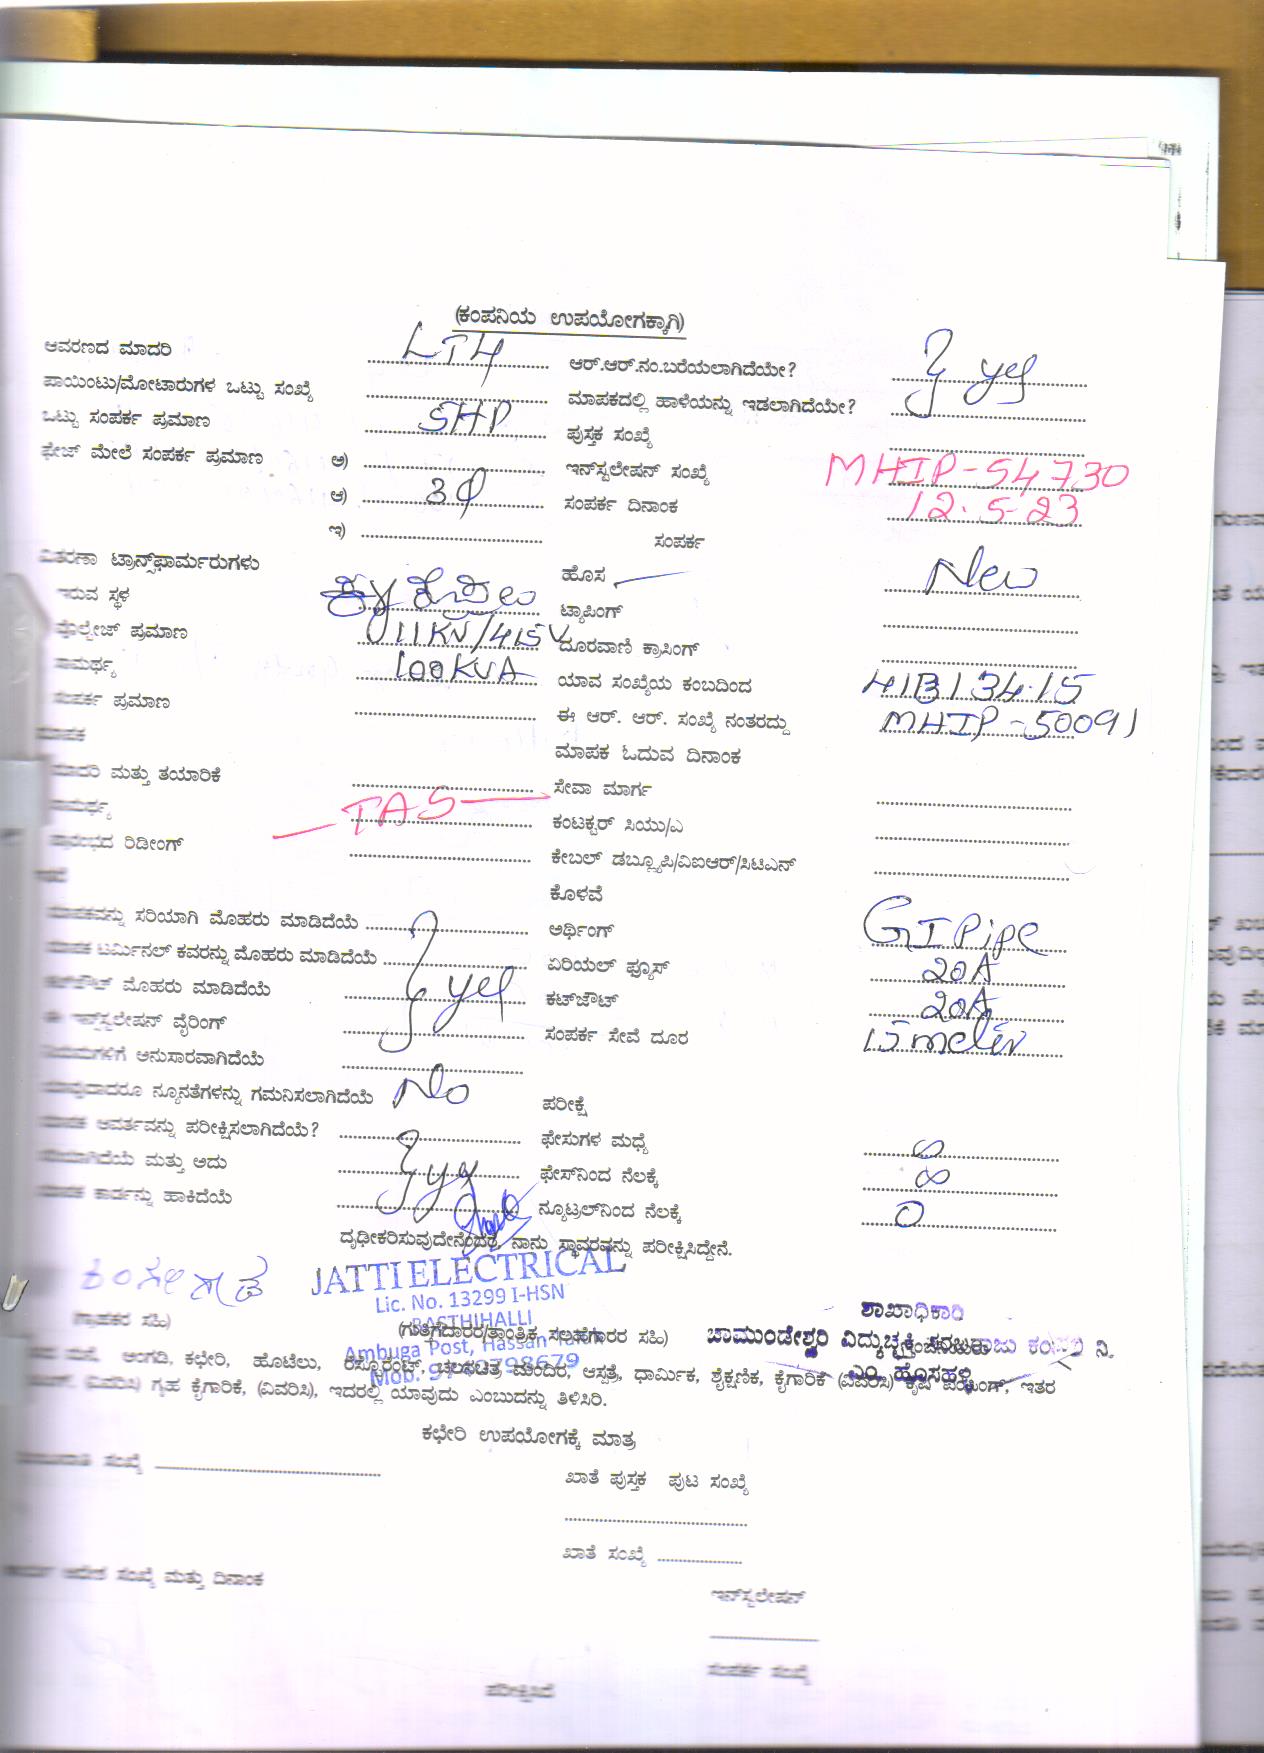 (ಕಂಪನಿಯ ಉಪಯೋಗಕ್ಕಾಗಿ)
ಆವರಣದ ಮಾದರಿ LT4 ಆರ್.ಆರ್.ನಂ.ಬರೆಯಲಾಗಿದೆಯೇ? yes
ಪಾಯಿಂಟು/ಮೋಟಾರುಗಳ ಒಟ್ಟು ಸಂಖ್ಯೆ ಮಾಪಕದಲ್ಲಿ ಹಾಳೆಯನ್ನು ಇಡಲಾಗಿದೆಯೇ?
ಒಟ್ಟು ಸಂಪರ್ಕ ಪ್ರಮಾಣ 5HP ಪುಸ್ತಕ ಸಂಖ್ಯೆ
ಫೇಜ್ ಮೇಲೆ ಸಂಪರ್ಕ ಪ್ರಮಾಣ ಅ) ಇನ್‌ಸ್ಟಲೇಷನ್ ಸಂಖ್ಯೆ MHIP-54730
ಆ) 3φ ಸಂಪರ್ಕ ದಿನಾಂಕ 12.5.23
ಇ) ಸಂಪರ್ಕ
ವಿತರಣಾ ಟ್ರಾನ್ಸ್‌ಫಾರ್ಮರುಗಳು ಹೊಸ New
ಇರುವ ಸ್ಥಳ ಟ್ಯಾಪಿಂಗ್
ವೋಲ್ಟೇಜ್ ಪ್ರಮಾಣ 11KV/415V ದೂರವಾಣಿ ಕ್ರಾಸಿಂಗ್
ಸಾಮರ್ಥ್ಯ 100KVA ಯಾವ ಸಂಖ್ಯೆಯ ಕಂಬದಿಂದ 41B134.15
ಸಂಪರ್ಕ ಪ್ರಮಾಣ ಈ ಆರ್. ಆರ್. ಸಂಖ್ಯೆ ನಂತರದ್ದು MHIP-50091
ಮಾಪಕ ಮಾಪಕ ಓದುವ ದಿನಾಂಕ
ಮಾದರಿ ಮತ್ತು ತಯಾರಿಕೆ ಸೇವಾ ಮಾರ್ಗ
ಸಾಮರ್ಥ್ಯ TAS ಕಂಟಕ್ಟರ್ ಸಿಯು/ಎ
ಪ್ರಾರಂಭದ ರಿಡೀಂಗ್ ಕೇಬಲ್ ಡಬ್ಲ್ಯೂಪಿ/ವಿಐಆರ್/ಸಿಟಿಎನ್
ಕೊಳವೆ
ಮಾಪಕವನ್ನು ಸರಿಯಾಗಿ ಮೊಹರು ಮಾಡಿದೆಯೆ ಅರ್ಥಿಂಗ್ GI Pipe
ಮಾಪಕ ಟರ್ಮಿನಲ್ ಕವರನ್ನು ಮೊಹರು ಮಾಡಿದೆಯೆ ಏರಿಯಲ್ ಫ್ಯೂಸ್ 20A
ಕಟ್‌ಔಟ್ ಮೊಹರು ಮಾಡಿದೆಯೆ yes ಕಟ್‌ಔಟ್ 20A
ಈ ಇನ್‌ಸ್ಟಲೇಷನ್ ವೈರಿಂಗ್ ಸಂಪರ್ಕ ಸೇವೆ ದೂರ 15 meter
ನಿಯಮಗಳಿಗೆ ಅನುಸಾರವಾಗಿದೆಯೆ
ಯಾವುದಾದರೂ ನ್ಯೂನತೆಗಳನ್ನು ಗಮನಿಸಲಾಗಿದೆಯೆ No ಪರೀಕ್ಷೆ
ಮಾಪಕ ಆವರ್ತವನ್ನು ಪರೀಕ್ಷಿಸಲಾಗಿದೆಯೆ? ಫೇಸುಗಳ ಮಧ್ಯೆ ∞
ಸರಿಯಾಗಿದೆಯೆ ಮತ್ತು ಅದು ಫೇಸ್‌ನಿಂದ ನೆಲಕ್ಕೆ ∞
ಮಾಪಕ ಕಾರ್ಡನ್ನು ಹಾಕಿದೆಯೆ ನ್ಯೂಟ್ರಲ್‌ನಿಂದ ನೆಲಕ್ಕೆ 0
ದೃಢೀಕರಿಸುವುದೇನೆಂದರೆ, ನಾನು ಸ್ಥಾವರವನ್ನು ಪರೀಕ್ಷಿಸಿದ್ದೇನೆ.
JATTI ELECTRICAL
Lic. No. 13299 I-HSN
BASTHIHALLI
Ambuga Post, Hassan
(ಗ್ರಾಹಕರ ಸಹಿ) (ಗುತ್ತಿಗೆದಾರರ/ತಾಂತ್ರಿಕ ಸಲಹೆಗಾರರ ಸಹಿ)
ಶಾಖಾಧಿಕಾರಿ
ಚಾಮುಂಡೇಶ್ವರಿ ವಿದ್ಯುಚ್ಛಕ್ತಿ ಸರಬರಾಜು ಕಂಪನಿ ನಿ.
ಎಂ. ಹೊಸಹಳ್ಳಿ
ಮನೆ, ಅಂಗಡಿ, ಕಛೇರಿ, ಹೊಟೆಲು, ರೆಸ್ಟೊರೆಂಟ್, ಚಲನಚಿತ್ರ ಮಂದಿರ, ಆಸ್ಪತ್ರೆ, ಧಾರ್ಮಿಕ, ಶೈಕ್ಷಣಿಕ, ಕೈಗಾರಿಕೆ (ವಿವರಿಸಿ) ಕೃಷಿ ಪಂಪಿಂಗ್, ಇತರ
(ವಿವರಿಸಿ) ಗೃಹ ಕೈಗಾರಿಕೆ, (ವಿವರಿಸಿ), ಇದರಲ್ಲಿ ಯಾವುದು ಎಂಬುದನ್ನು ತಿಳಿಸಿರಿ.
ಕಛೇರಿ ಉಪಯೋಗಕ್ಕೆ ಮಾತ್ರ
ಸಂಖ್ಯೆ ಖಾತೆ ಪುಸ್ತಕ ಪುಟ ಸಂಖ್ಯೆ
ಖಾತೆ ಸಂಖ್ಯೆ
ಆದೇಶ ಸಂಖ್ಯೆ ಮತ್ತು ದಿನಾಂಕ ಇನ್‌ಸ್ಟಲೇಷನ್
ಸಂಪರ್ಕ ಸಂಖ್ಯೆ
ಪರೀಕ್ಷಿಸಿದೆ